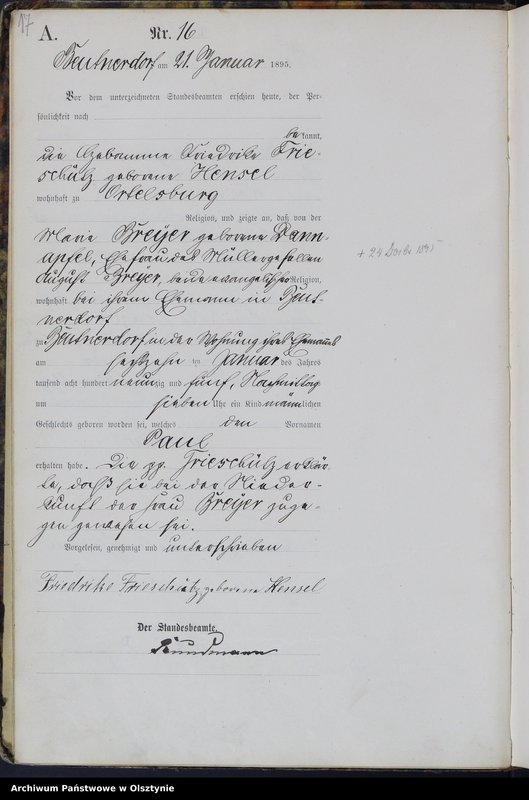 17
A.
Nr. 16
Beutnerdorf am 21. Januar 1895.
Vor dem unterzeichneten Standesbeamten erschien heute, der Per-
sönlichkeit nach
be kannt,
die Hebamme Friedrike Frie-
schütz geborene Hensel
wohnhaft zu Ortelsburg
Religion, und zeigte an, daß von der
Marie Breyer geborene Dann-
apfel, Ehefrau des Müllergesellen
August Breyer, beide evangelischer Religion,
wohnhaft bei ihrem Ehemann in Beut-
nerdorf
zu Beutnerdorf in der Wohnung ihres Ehemanns
am sechzehn ten Januar des Jahres
tausend acht hundert neunzig und fünf, Nachmittag
um sieben Uhr ein Kind männlichen
Geschlechts geboren worden sei, welches den Vornamen
Paul
erhalten habe. Die pp. Frieschütz erklär-
te, daß sie bei der Nieder-
kunft der Frau Breyer zuge-
gen gewesen sei.
Vorgelesen, genehmigt und unterschrieben
Friedrike Frieschütz geborene Hensel
Der Standesbeamte.
+ 24 1895
Archiwum Państwowe w Olsztynie